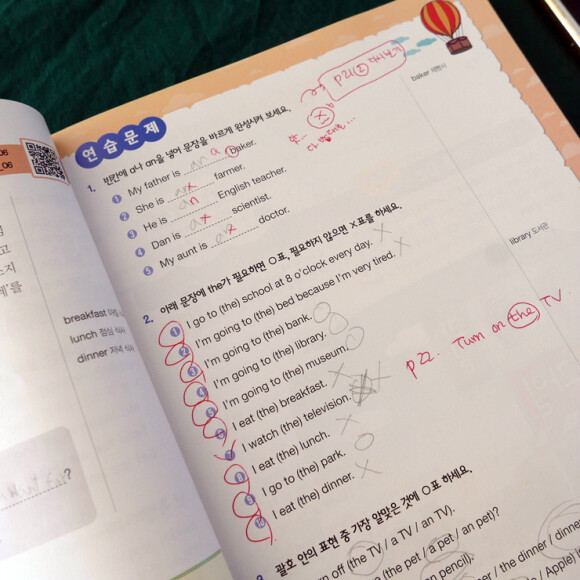 06
_06
고
breakfast 아침 식사
lunch 점심 식사
dinner 저녁 식사
?
연습문제
p21② 다시 보기
baker 제빵사
1. 빈칸에 a나 an을 넣어 문장을 바르게 완성시켜 보세요.
❶ My father is an a baker.
❷ She is an farmer.
❸ He is an English teacher.
❹ Dan is a scientist.
❺ My aunt is an doctor.
2. 아래 문장에 the가 필요하면 O표, 필요하지 않으면 X표를 하세요.
library 도서관
❶ I go to (the) school at 8 o'clock every day. X
❷ I'm going to (the) bed because I'm very tired. X
❸ I'm going to (the) bank. O
❹ I'm going to (the) library. O
❺ I'm going to (the) museum. O
❻ I eat (the) breakfast. X
❼ I watch (the) television. X
❽ I eat (the) lunch. X
❾ I go to (the) park. O
❿ I eat (the) dinner. X
p22. Turn on the TV
3 괄호 안의 표현 중 가장 알맞은 것에 O표 하세요.
off (the TV / a TV / an TV).
(the pet / a pet / an pet)?
pencil).
/ the dinner / dinner
Apple)